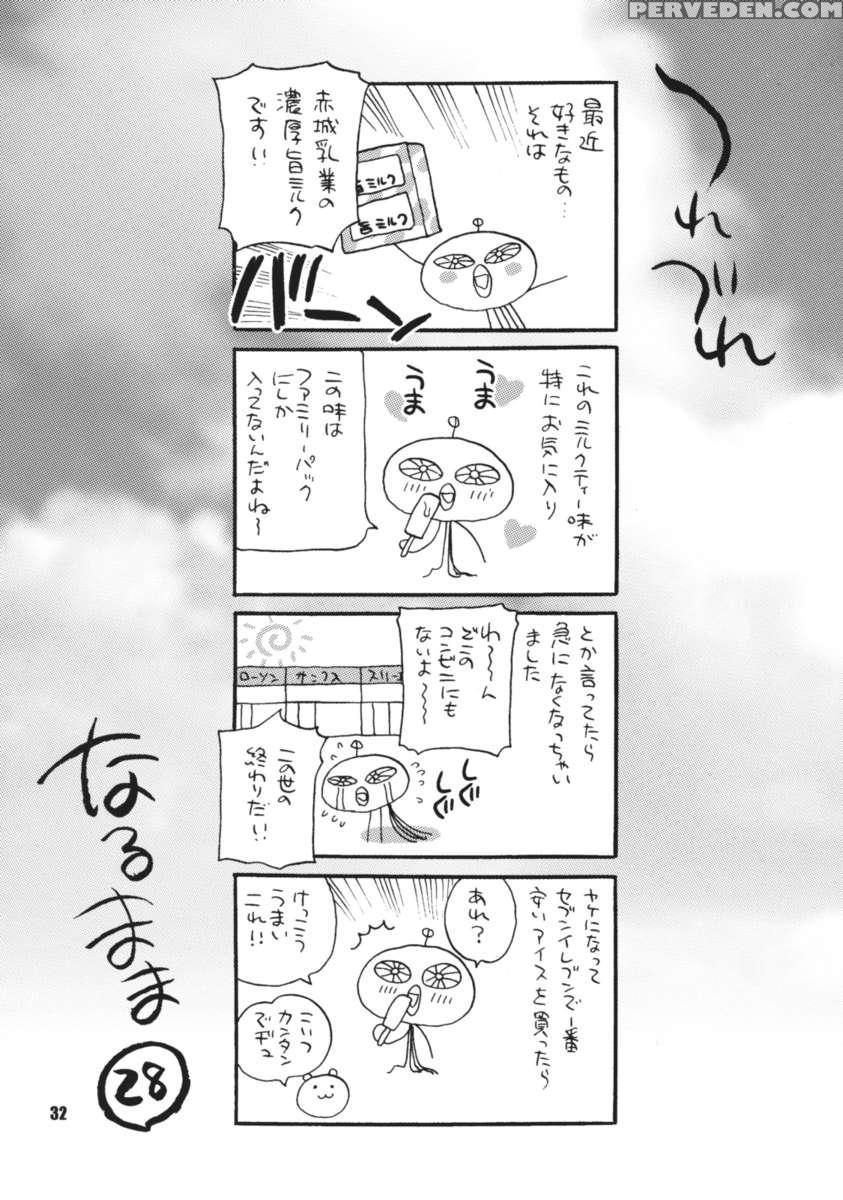 PERVEDEN.COM
つれづれ
なるまま
28
最近
好きなもの…
それは
赤城乳業の
濃厚旨ミルク
です!!
旨ミルク
旨ミルク
バーン
これのミルクティー味が
特にお気に入り
うま
うま
この味は
ファミリーパック
にしか
入ってないんだよね～
とか言ってたら
急になくなっちゃい
ました
わ～～ん
どこの
コンビニにも
ないよ～～
ローソン
サンクス
スリーエ
しぐ
しぐ
この世の
終わりだい!!
ヤケになって
セブンイレブンで一番
安いアイスを買ったら
あれ?
けっこう
うまい
コレ!!
こいつ
カンタン
でヂュ
32